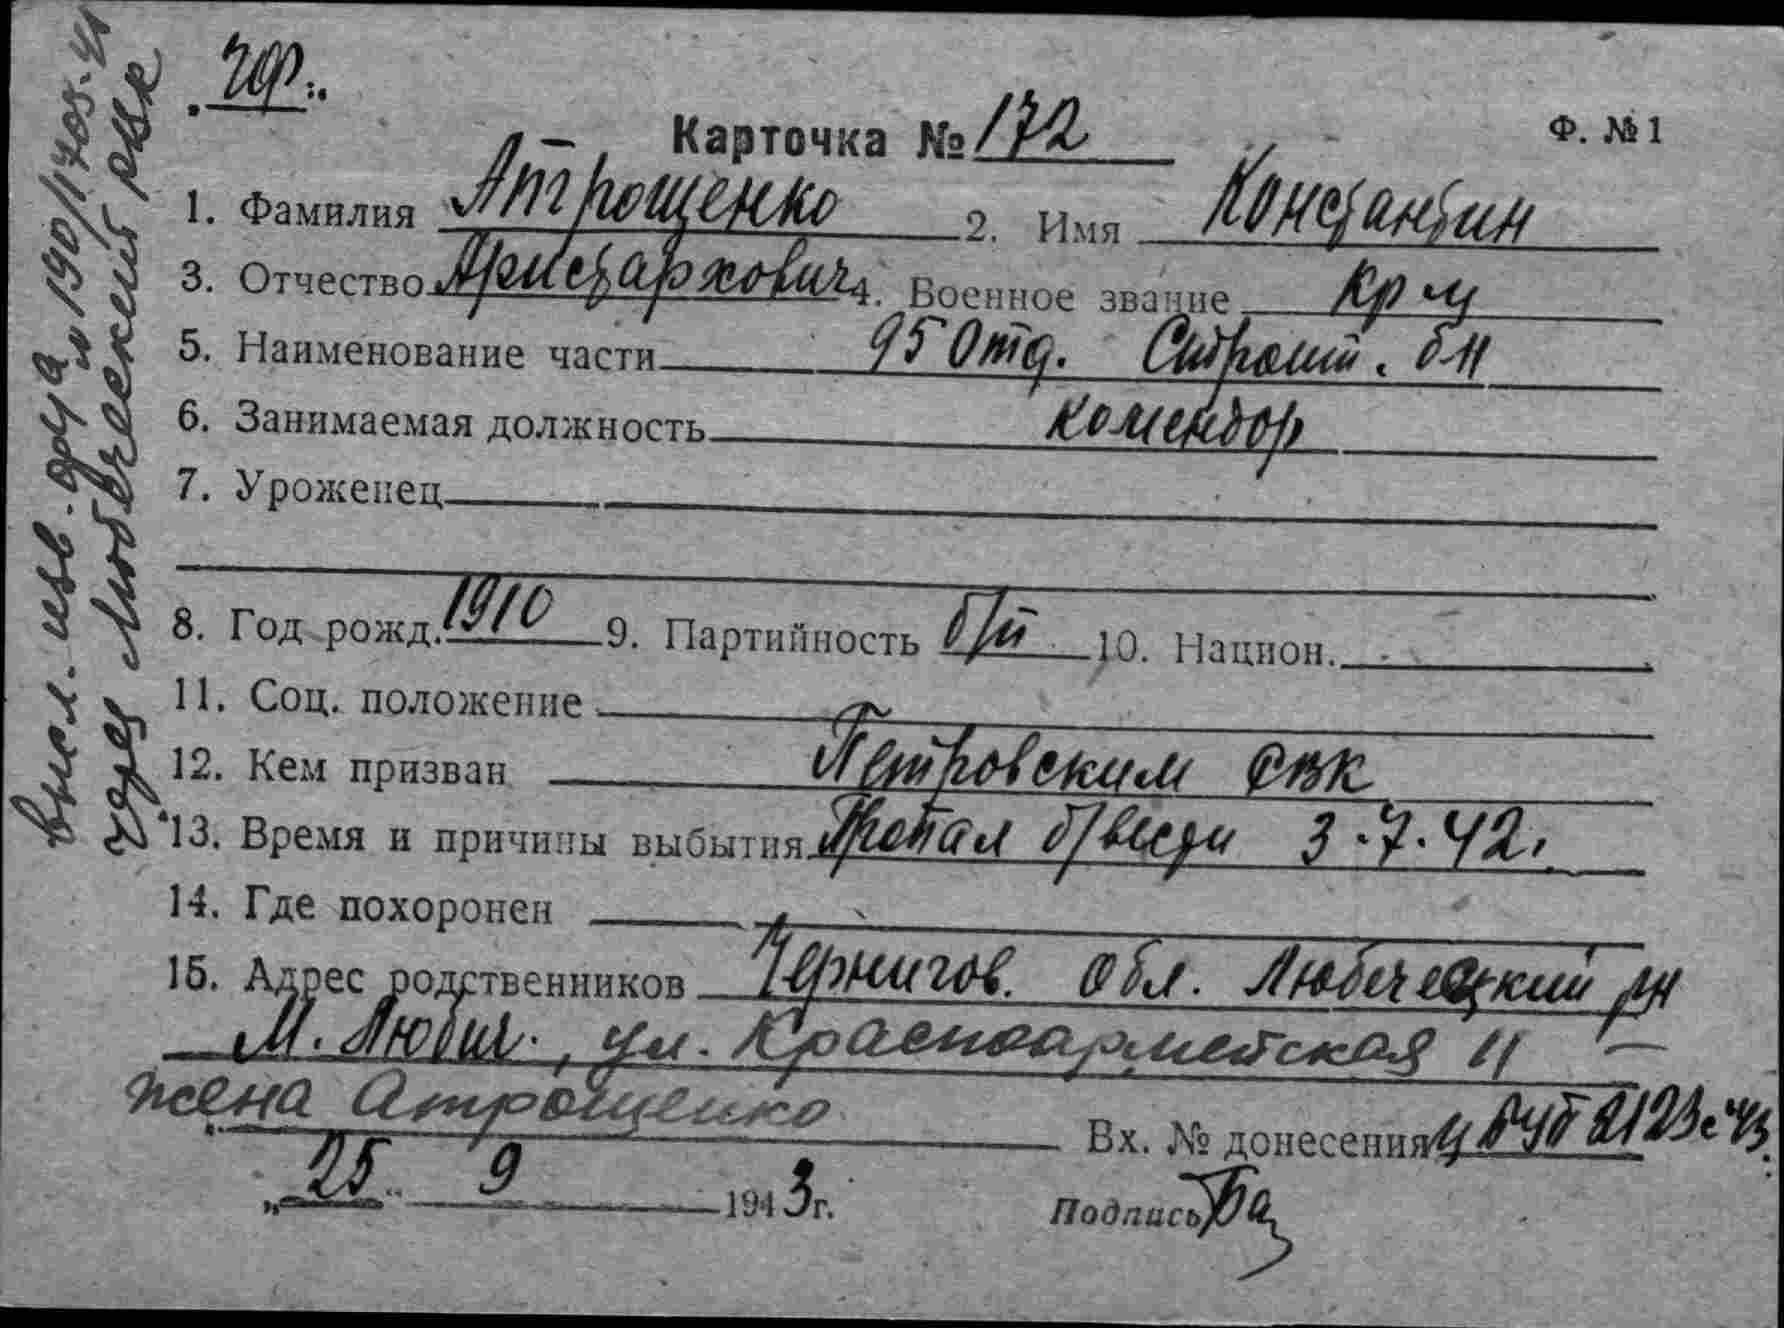 чф.
Карточка № 172
Ф. № 1
1. Фамилия Атрощенко 2. Имя Константин
3. Отчество Аристархович 4. Военное звание кр-ц
5. Наименование части 95 отд. Строит. б-н
6. Занимаемая должность комендор
7. Уроженец
8. Год рожд. 1910 9. Партийность б/п 10. Национ.
11. Соц. положение
12. Кем призван Петровским РВК
13. Время и причины выбытия Пропал б/вести 3.7.42г.
14. Где похоронен
15. Адрес родственников Чернигов. обл. Любечский рн
М. Любич., ул. Красноармейская 11 —
жена Атрощенко
Вх. № донесения 2123с 43
„25" 9 1943г.
Подпись
высл. изв. ф
через Любечский РВК